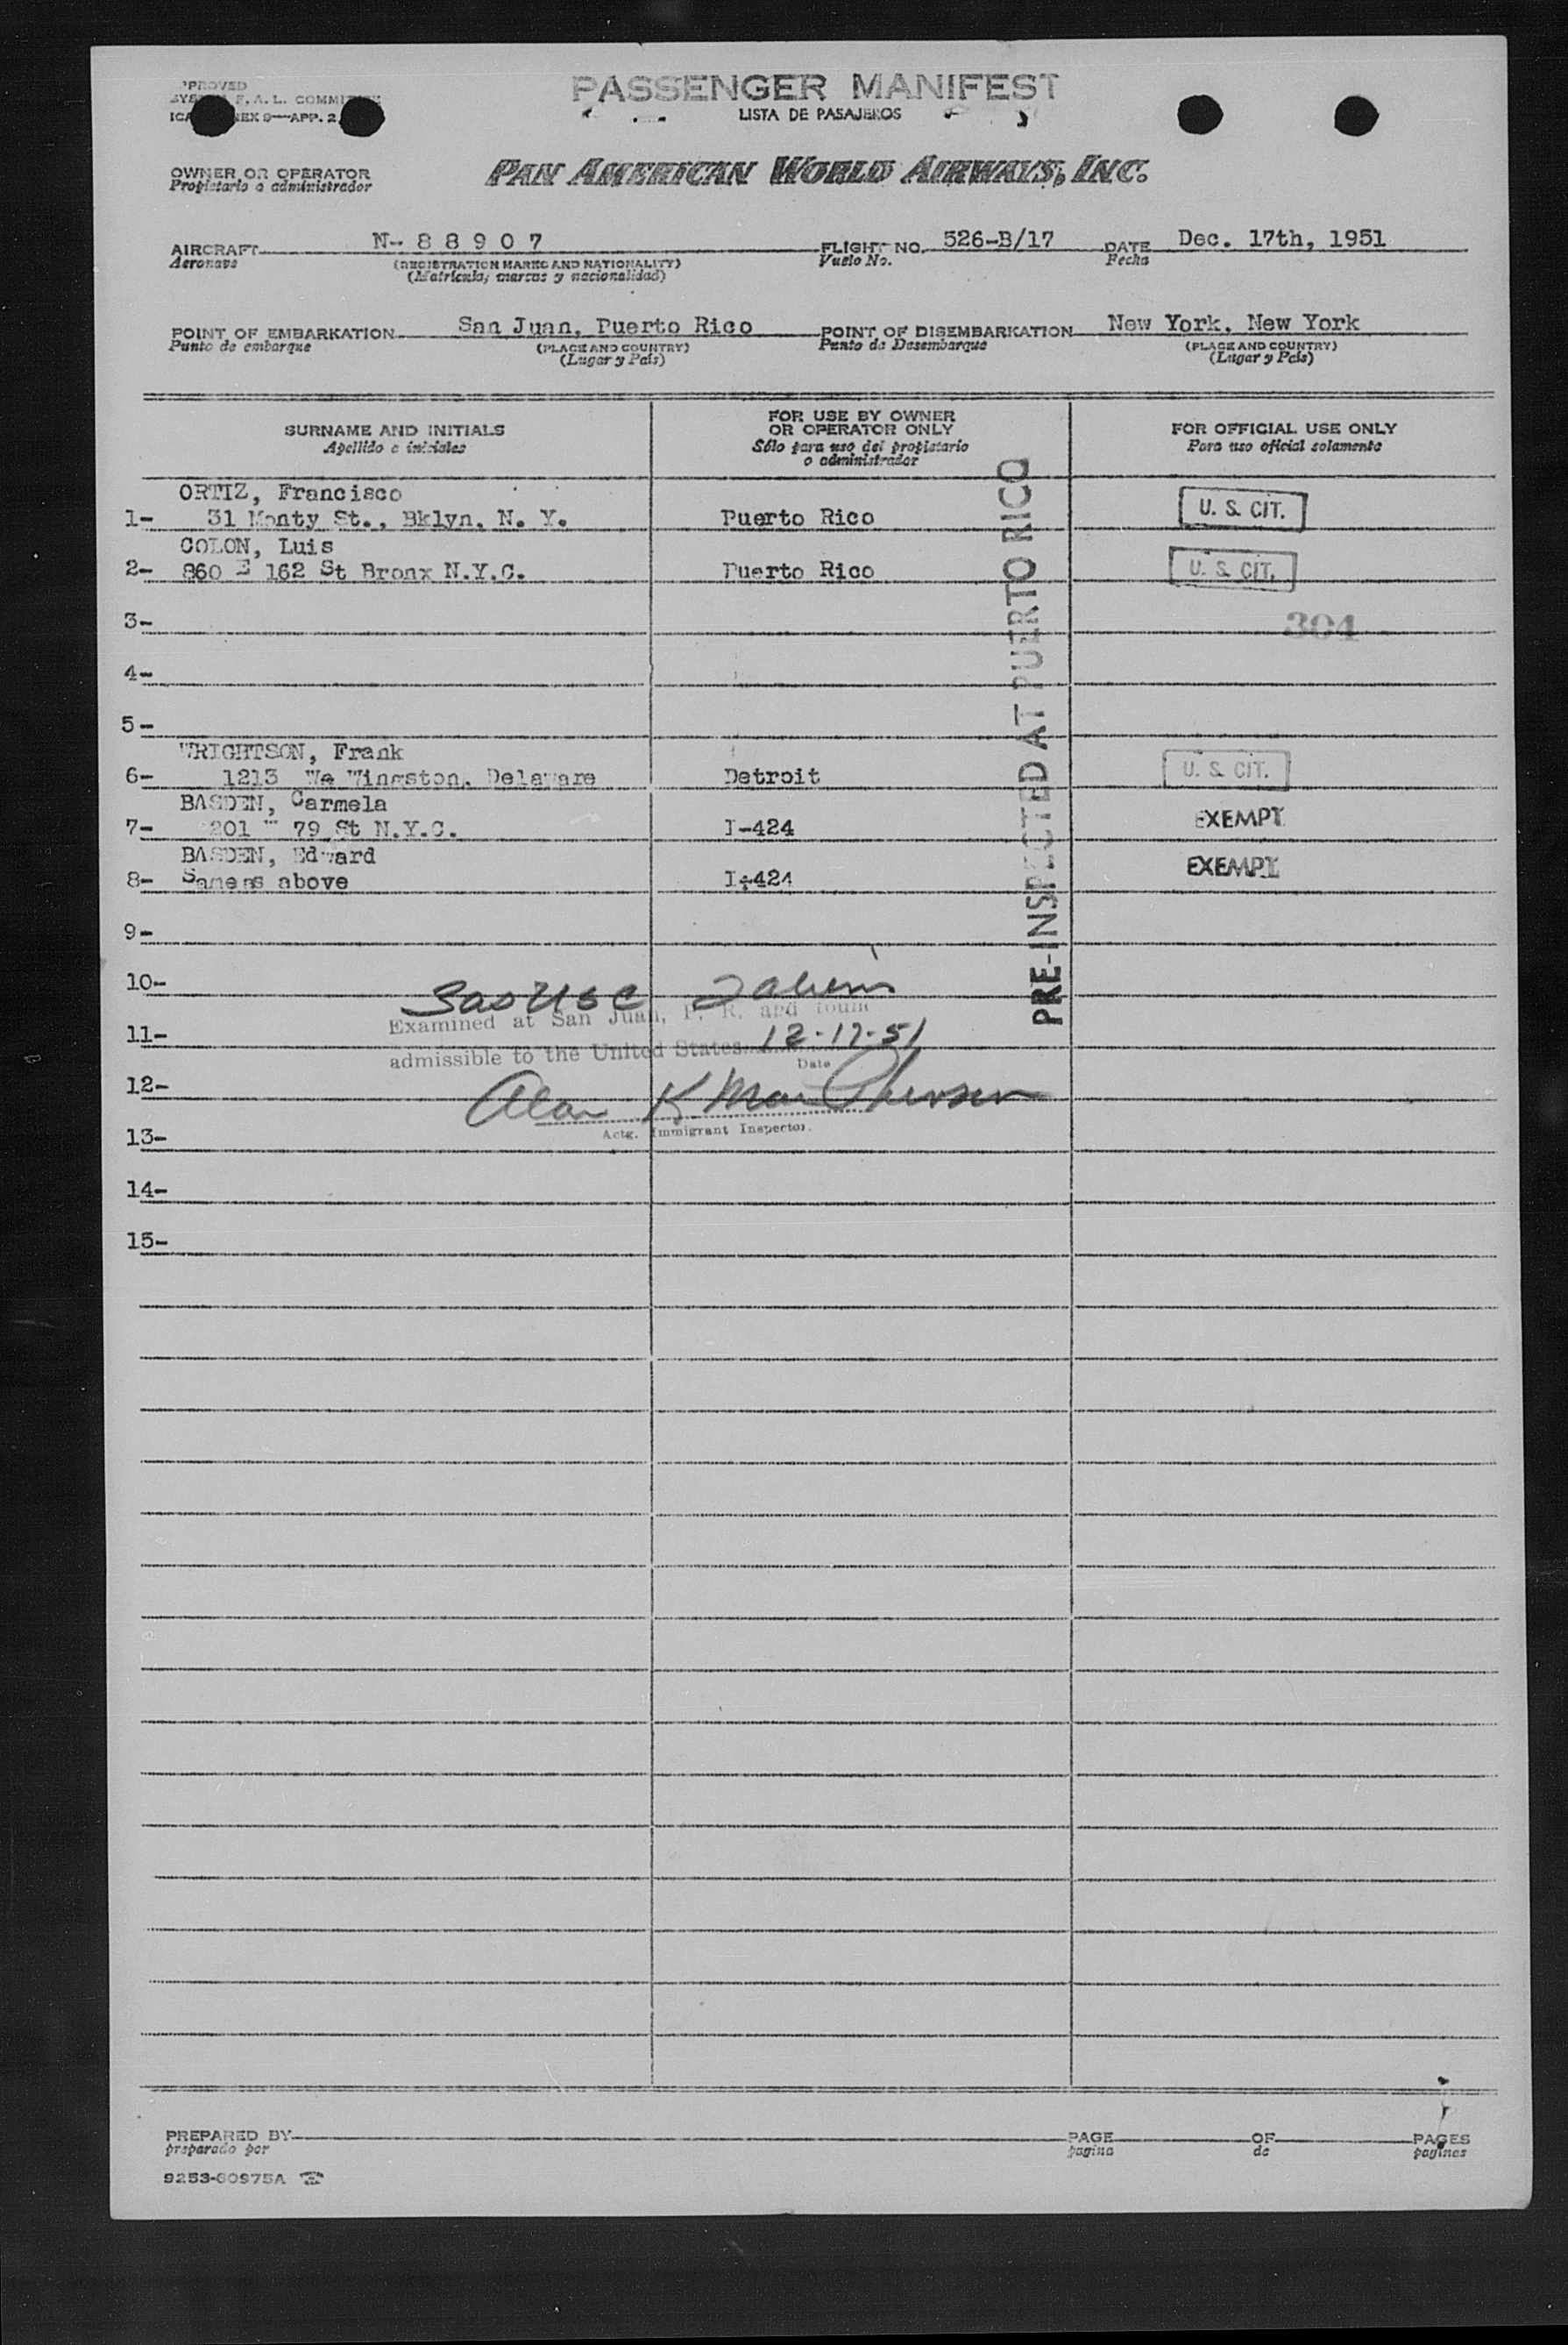 PASSENGER MANIFEST
LISTA DE PASAJEROS
PROVED
F. A. L.
9—APP. 2
OWNER OR OPERATOR
Propietario o administrador
PAN AMERICAN WORLD AIRWAYS, INC.
AIRCRAFT N- 8 8 9 0 7 FLIGHT NO. 526-B/17 DATE Dec. 17th, 1951
Aeronave (REGISTRATION MARKS AND NATIONALITY) Vuelo No. Fecha
(Matrícula, marcas y nacionalidad)
POINT OF EMBARKATION San Juan, Puerto Rico POINT OF DISEMBARKATION New York, New York
Punto de embarque (PLACE AND COUNTRY) Punto de Desembarque (PLACE AND COUNTRY)
(Lugar y País) (Lugar y País)
SURNAME AND INITIALS
Apellido e iniciales
FOR USE BY OWNER
OR OPERATOR ONLY
Sólo para uso del propietario
o administrador
FOR OFFICIAL USE ONLY
Para uso oficial solamente
ORTIZ, Francisco
1- 31 St., Bklyn, N. Y. Puerto Rico U. S. CIT.
COLON, Luis
2- 860 E 162 St Bronx N.Y.C. Puerto Rico U. S. CIT.
3- 304
4-
5-
WRIGHTSON, Frank
6- 1213 Delaware Detroit U. S. CIT.
BASDEN, Carmela
7- 201 79 St N.Y.C. I-424 EXEMPT
BASDEN, Edward
8- Same as above I-424 EXEMPT
9-
10-
11-
12-
13-
14-
15-
PRE-INSPECTED AT PUERTO RICO
3 USC 2 aliens
Examined at San Juan, P. R. and found
admissible to the United States 12-17-51
Date
Alan K MacPherson
Actg. Immigrant Inspector.
PREPARED BY PAGE OF PAGES
preparado por pagina de paginas
9253-60975A